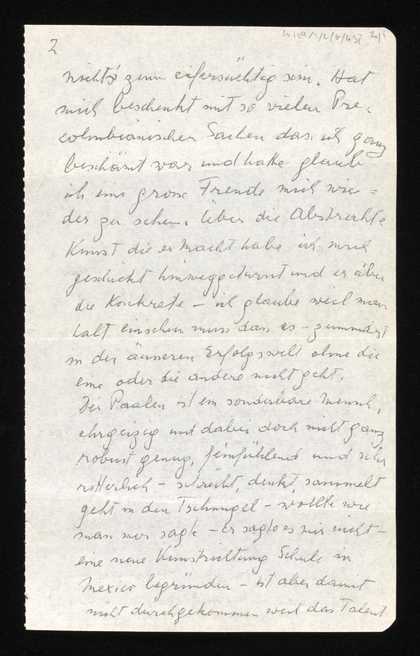 2
nichts zum eifersüchtig sein. Hat
mich beschenkt mit so vielen Pre-
colmbianischen Sachen dass ich ganz
beschämt war und hatte glaub
ich eine grosse Freude mich wie=
der zu sehen. Über die Abstrakte
Kunst die er macht habe ich mich
geschickt hinweggeturnt und er über
die Konkrete – ich glaube weil man
halt einsehen muss dass es – zumindest
in der äusseren Erfolgswelt ohne die
eine oder die andere nicht geht.
Der Paalen ist ein sonderbarer Mensch,
ehrgeizig und dabei doch nicht ganz
robust genug, feinfühlend und sehr
ritterlich – schreibt, denkt, sammelt
geht in den Dschungel – wollte wie
man mir sagte – er sagte es mir nicht –
eine neue Kunstrichtung Schule in
Mexico begründen – ist aber damit
nicht durchgekommen weil das Talent